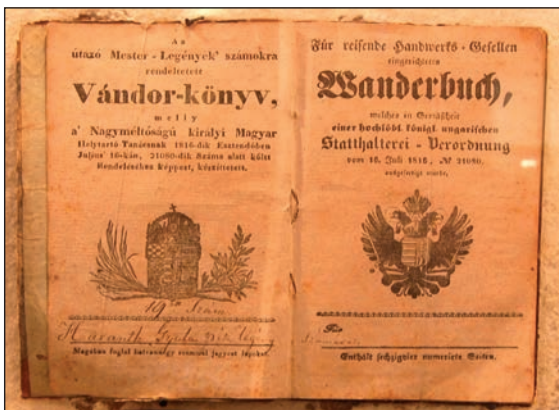 Az
útazó Mester-Legények' számokra
rendeltetett
Vándor-könyv,
melly
a' Nagyméltóságú királyi Magyar
Helytartó Tanácsnak 1816-dik Esztendőben
Julius' 16-kán, 21080-dik Száma alatt költ
Rendeléséhez képpest, készíttetett.
19
Magában foglal hatvannégy számmal jegyzett lapokat.
Für reisende Handwerks-Gesellen
eingerichtetes
Wanderbuch,
welches in Gemäßheit
einer hochlöbl. königl. ungarischen
Statthalterei-Verordnung
vom 16. Juli 1816, № 21080.
ausgefertigt wurde.
Für
Enthält sechzigvier numerirte Seiten.